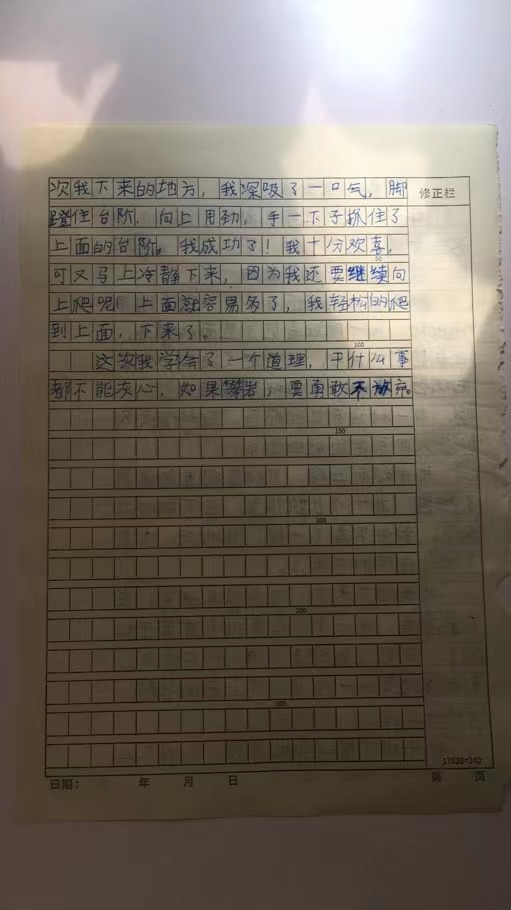 次我下来的地方，我深吸了一口气，脚
修正栏
蹬住台阶，向上用劲，手一下子抓住了
上面的台阶。我成功了！我十分欢喜，
50
可又马上冷静下来，因为我还要继续向
上爬呢！上面就容易多了，我轻松的爬
到上面，下来了。
100
这次我学会了一个道理，干什么事
都不能灰心，如果攀岩，要勇敢不放弃。
150
200
250
300
17X20=340
日期： 年 月 日 第 页